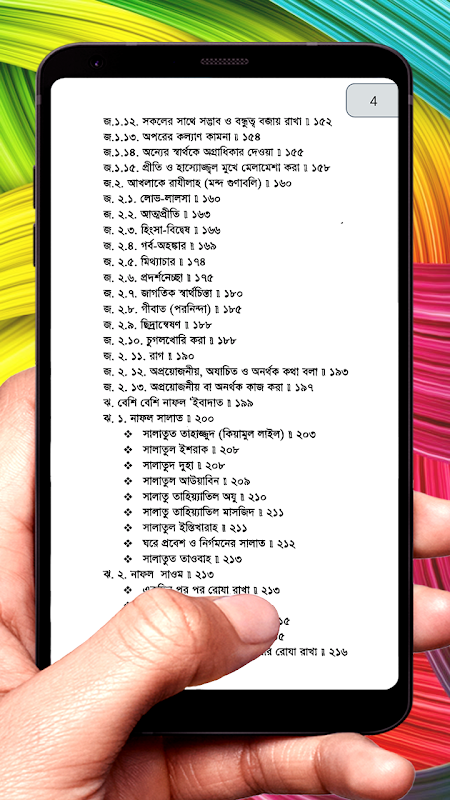 4
জ.১.১২. সকলের সাথে সদ্ভাব ও বন্ধুত্ব বজায় রাখা ॥ ১৫২
জ.১.১৩. অপরের কল্যাণ কামনা ॥ ১৫৪
জ.১.১৪. অন্যের স্বার্থকে অগ্রাধিকার দেওয়া ॥ ১৫৫
জ.১.১৫. প্রীতি ও হাস্যোজ্জ্বল মুখে মেলামেশা করা ॥ ১৫৮
জ.২. আখলাকে রাযীলাহ (মন্দ গুণাবলি) ॥ ১৬০
জ. ২.১. লোভ-লালসা ॥ ১৬০
জ. ২.২. আত্মপ্রীতি ॥ ১৬৩
জ. ২.৩. হিংসা-বিদ্বেষ ॥ ১৬৬
জ. ২.৪. গর্ব-অহঙ্কার ॥ ১৬৯
জ. ২.৫. মিথ্যাচার ॥ ১৭৪
জ. ২.৬. প্রদর্শনেচ্ছা ॥ ১৭৫
জ. ২.৭. জাগতিক স্বার্থচিন্তা ॥ ১৮০
জ. ২.৮. গীবাত (পরনিন্দা) ॥ ১৮৫
জ. ২.৯. ছিদ্রান্বেষণ ॥ ১৮৮
জ. ২.১০. চুগলখোরি করা ॥ ১৮৮
জ. ২. ১১. রাগ ॥ ১৯০
জ. ২. ১২. অপ্রয়োজনীয়, অযাচিত ও অনর্থক কথা বলা ॥ ১৯৩
জ. ২. ১৩. অপ্রয়োজনীয় বা অনর্থক কাজ করা ॥ ১৯৭
ঝ. বেশি বেশি নাফল 'ইবাদাত ॥ ১৯৯
ঝ. ১. নাফল সালাত ॥ ২০০
❖ সালাতুত তাহাজ্জুদ (কিয়ামুল লাইল) ॥ ২০৩
❖ সালাতুল ইশরাক ॥ ২০৮
❖ সালাতুদ দুহা ॥ ২০৮
❖ সালাতুল আউয়াবিন ॥ ২০৯
❖ সালাতু তাহিয়্যাতিল অযু ॥ ২১০
❖ সালাতু তাহিয়্যাতিল মাসজিদ ॥ ২১১
❖ সালাতুল ইস্তিখারাহ ॥ ২১১
❖ ঘরে প্রবেশ ও নির্গমনের সালাত ॥ ২১২
❖ সালাতুত তাওবাহ ॥ ২১৩
ঝ. ২. নাফল সাওম ॥ ২১৩
❖ একদিন পর পর রোযা রাখা ॥ ২১৩
রোযা রাখা ॥ ২১৬